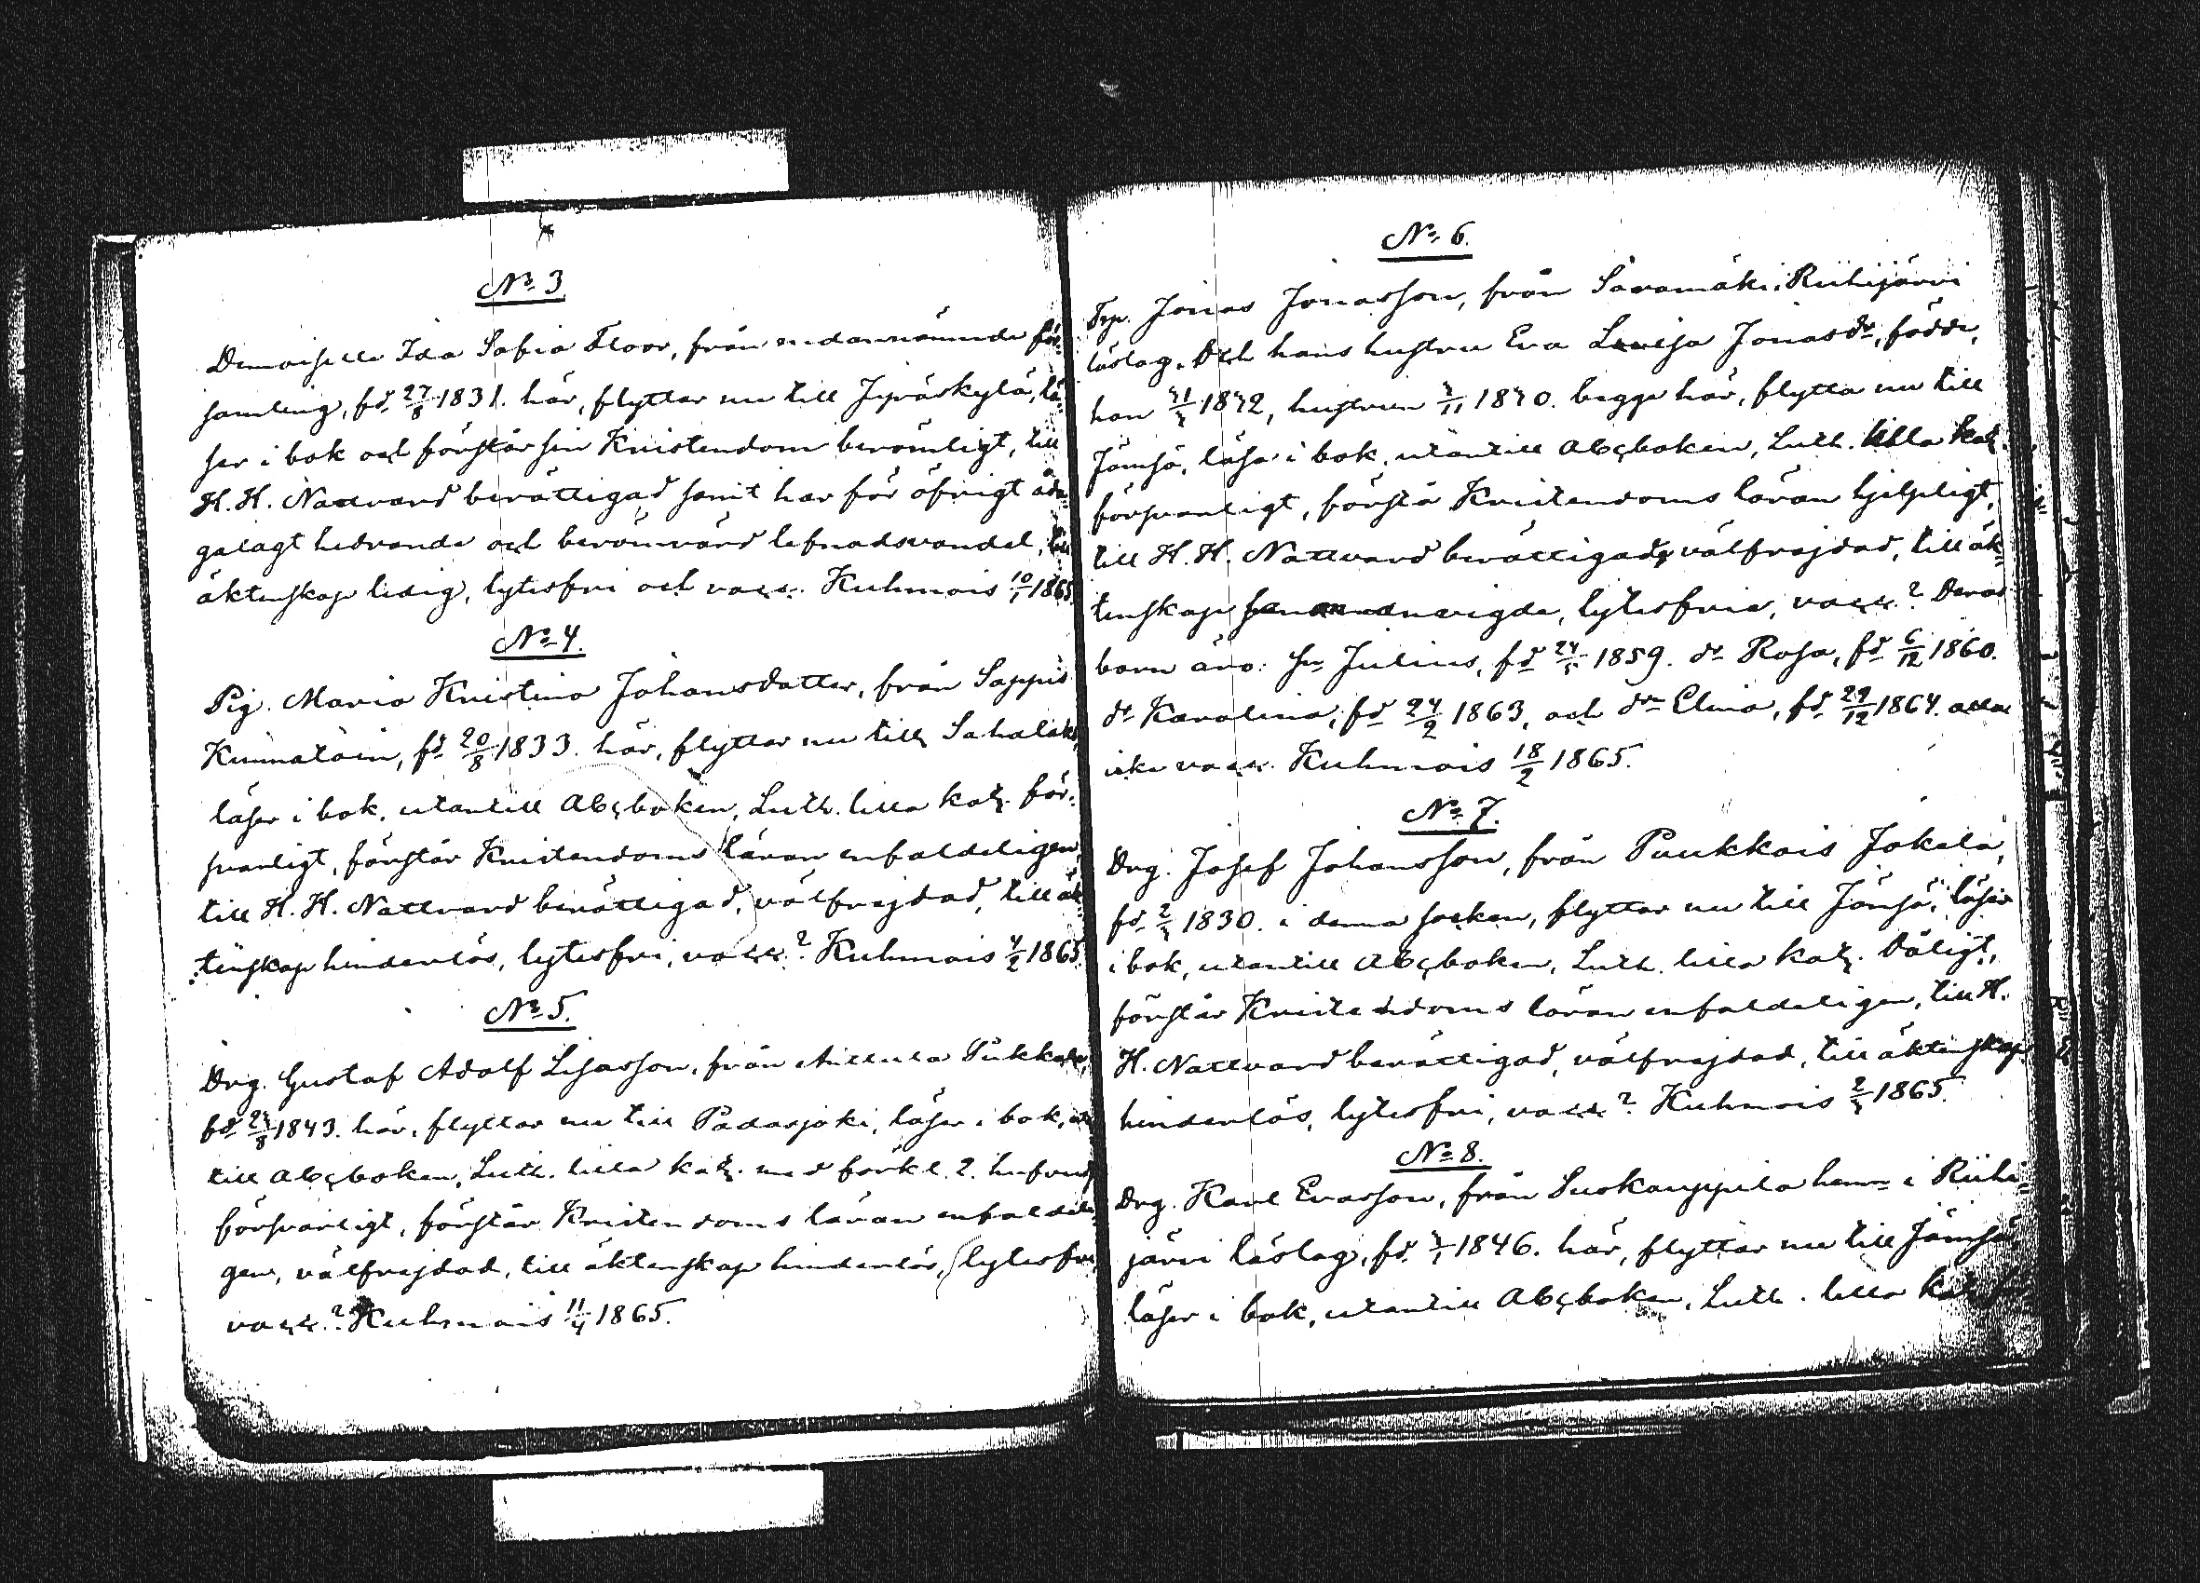 No 3.
Demoiselle Ida Sofia Floor, från nedannämnde för=
samling, fd. 27/8 1831. här, flyttar nu till Jyväskylä, lä=
ser i bok och förstår sin Kristendom berömligt, till
H. H. Nattvard berättigad samt har för öfrigt åda=
galagt hedrande och berömvärd lefnadsvandel, till
äktenskap ledig, lytesfri och vacc. Kuhmois 10/1 1865
No 4.
Pig. Maria Kristina Johansdotter, från Sappis
fd. 20/8 1833. här, flyttar nu till Sahalaks,
läser i bok, utantill Abcboken, Luth. lilla katz. för=
svarligt, förstår Kristendoms läran enfaldeligen,
till H. H. Nattvard berättigad, välfrejdad, till äk=
tenskap hinderlös, lytesfri, vacc.? Kuhmois 4/2 1865.
No 5.
Drg. Gustaf Adolf Lisasson, från
1843. här, flyttar nu till Padasjoki, läser i bok,
till Abcboken, Luth. lilla katz. med förkl. 2. hufvud
försvarligt, förstår Kristendoms läran enfaldeli=
gen, välfrejdad, till äktenskap hinderlös, lytesfri,
vacc.? Kuhmois 11/4 1865.
No 6.
Jonas Jonasson, från Saramäki i Riihijärvi
läslag. Och hans hustru Eva Lovisa Jonasdr, födde,
han hustrun begge här, flytta nu till
Jämsä, läsa i bok, utantill Abcboken, Luth. lilla Katz.
försvarligt, förstå Kristendoms läran hjelpligt,
till H. H. Nattvard berättigade, välfrejdad, till äk=
tenskap lytesfria, vacc.? Deras
barn äro: sn Julius, fd 1859. dr Rosa, fd 6/12 1860.
dr Karolina, fd 24/2 1863, och drn Elina, fd 29/12 1864. alla
icke vacc. Kuhmois 18/2 1865.
No 7.
Drg. Josef Johansson, från Paukkois Jokela,
fd. 1830. i denna socken, flyttar nu till Jämsä, läser
i bok, utantill Abcboken, Luth. lilla katz. dåligt,
förstår Kristendoms läran enfaldeligen, till H.
H. Nattvard berättigad, välfrejdad, till äktenskap
hinderlös, lytesfri, vacc.? Kuhmois 1865.
No 8.
Drg. Karl Evasson, från Suokauppila hemn i Riihi=
järvi läslag, fd. 1846. här, flyttar nu till Jämsä,
läser i bok, utantill Abcboken, Luth. lilla katz.